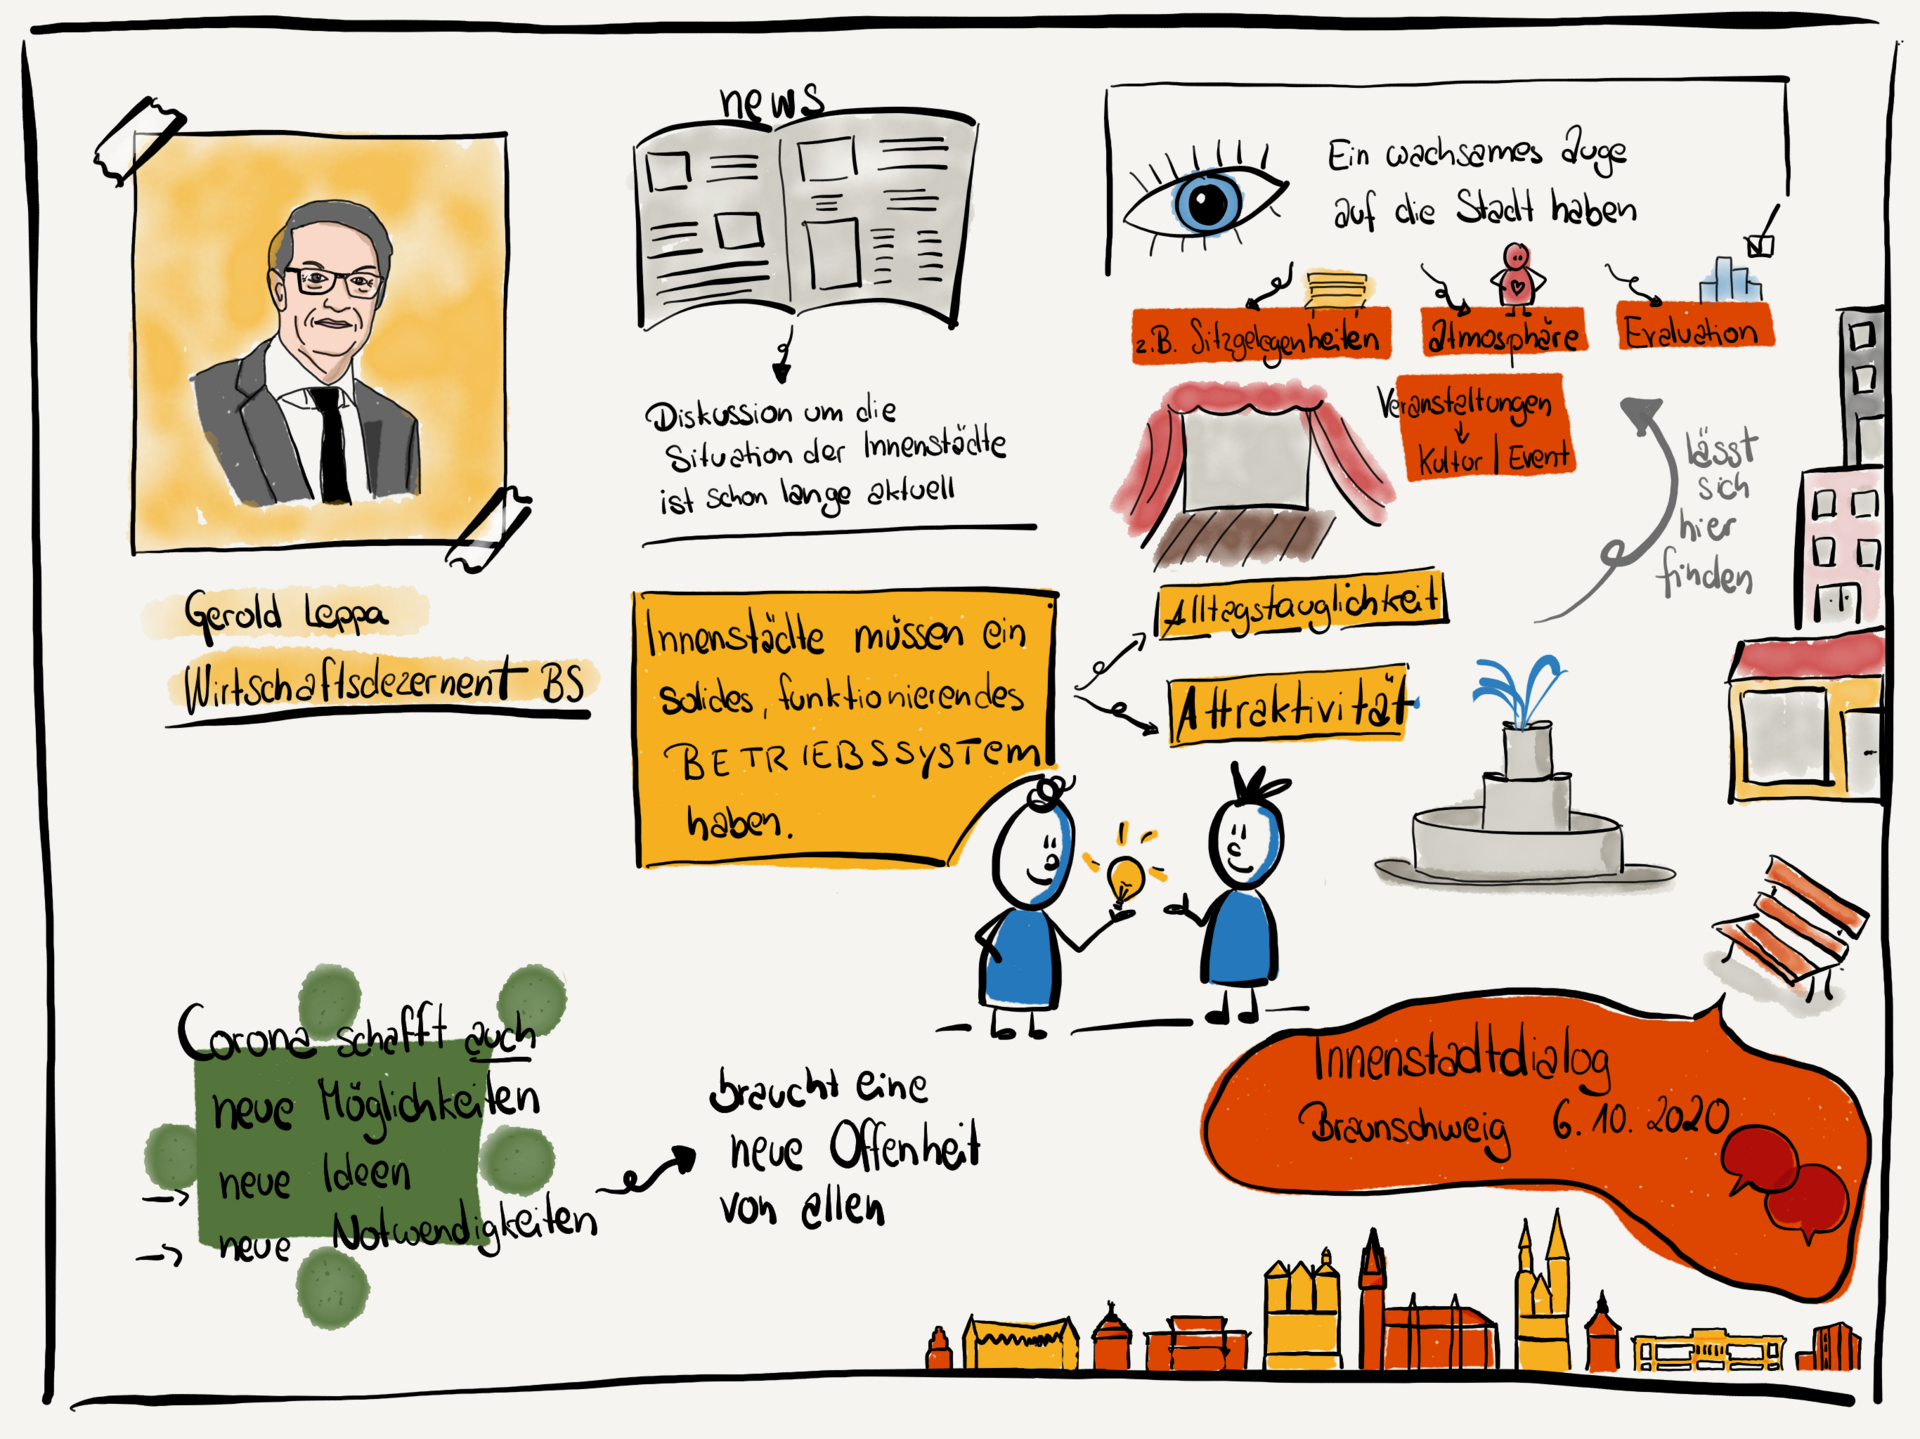 Gerold Leppa
Wirtschaftsdezernent BS
news
Diskussion um die
Situation der Innenstädte
ist schon lange aktuell
Ein wachsames Auge
auf die Stadt haben
z.B. Sitzgelegenheiten
Atmosphäre
Evaluation
Veranstaltungen
Kultur | Event
lässt
sich
hier
finden
Innenstädte müssen ein
solides, funktionierendes
BETRIEBSSYSTEM
haben.
Alltagstauglichkeit
Attraktivität
Corona schafft auch
neue Möglichkeiten
neue Ideen
neue Notwendigkeiten
braucht eine
neue Offenheit
von allen
Innenstadtdialog
Braunschweig 6.10.2020